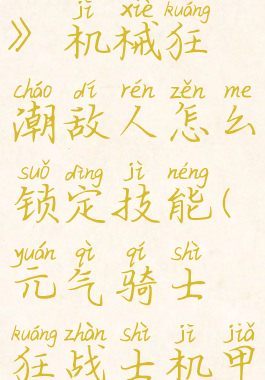 jī xiè kuáng
》机械狂
cháo dí rén zěn me
潮敌人怎么
suǒ dìng jì néng
锁定技能(
yuán qì qí shì
元气骑士
kuáng zhàn shì jī jiǎ
狂战士机甲